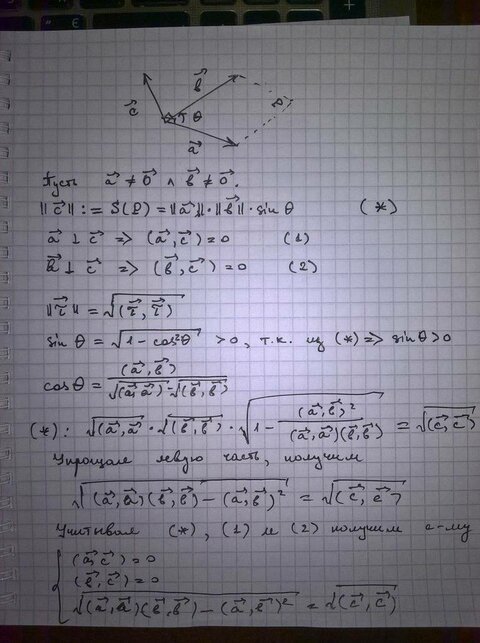 c⃗ b⃗ θ a⃗
Пусть a⃗ ≠ 0⃗ ∧ b⃗ ≠ 0⃗.
||c⃗|| := S(P) = ||a⃗||·||b⃗||·sin θ (*)
a⃗ ⊥ c⃗ => (a⃗, c⃗) = 0 (1)
b⃗ ⊥ c⃗ => (b⃗, c⃗) = 0 (2)
||τ⃗|| = √(τ⃗, τ⃗)
sin θ = √(1 - cos²θ) > 0, т.к. из (*) => sin θ > 0
cos θ = (a⃗, b⃗) / (√(a⃗, a⃗)·√(b⃗, b⃗))
(*): √(a⃗, a⃗) · √(b⃗, b⃗) · √(1 - (a⃗, b⃗)² / ((a⃗, a⃗)(b⃗, b⃗))) = √(c⃗, c⃗)
Упрощая левую часть, получим
√((a⃗, a⃗)(b⃗, b⃗) - (a⃗, b⃗)²) = √(c⃗, c⃗)
Учитывая (*), (1) и (2) получим с-му
{ (a⃗, c⃗) = 0
(b⃗, c⃗) = 0
√((a⃗, a⃗)(b⃗, b⃗) - (a⃗, b⃗)²) = √(c⃗, c⃗)